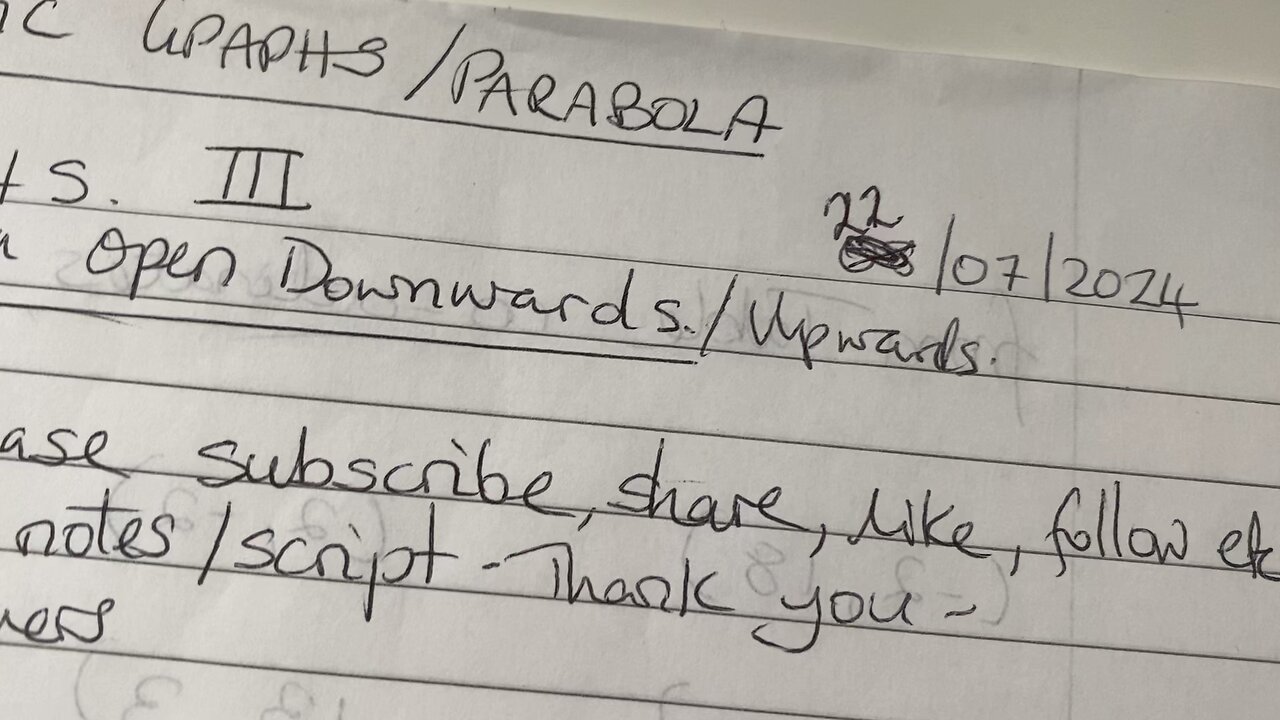 C GRAPHS/PARABOLA
S. III
22/07/2024
Open Downwards./Upwards.
ase subscribe, share, like, follow etc
notes/script - Thank you -